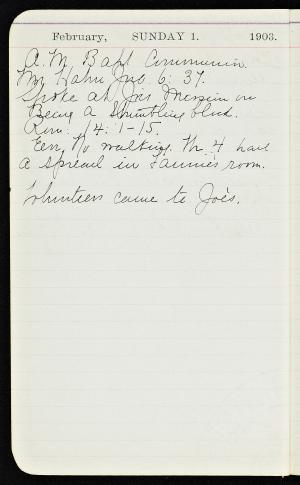 February, SUNDAY 1. 1903.
A.M. Bapt Communion.
Mr Hahn Jno. 6: 37.
Spoke at Joe's Mission on
Being a stumbling block.
Rom: 14: 1-15.
Eve. No walking. We 4 have
a spread in Fannie's room.
Volunteers came to Joe's.